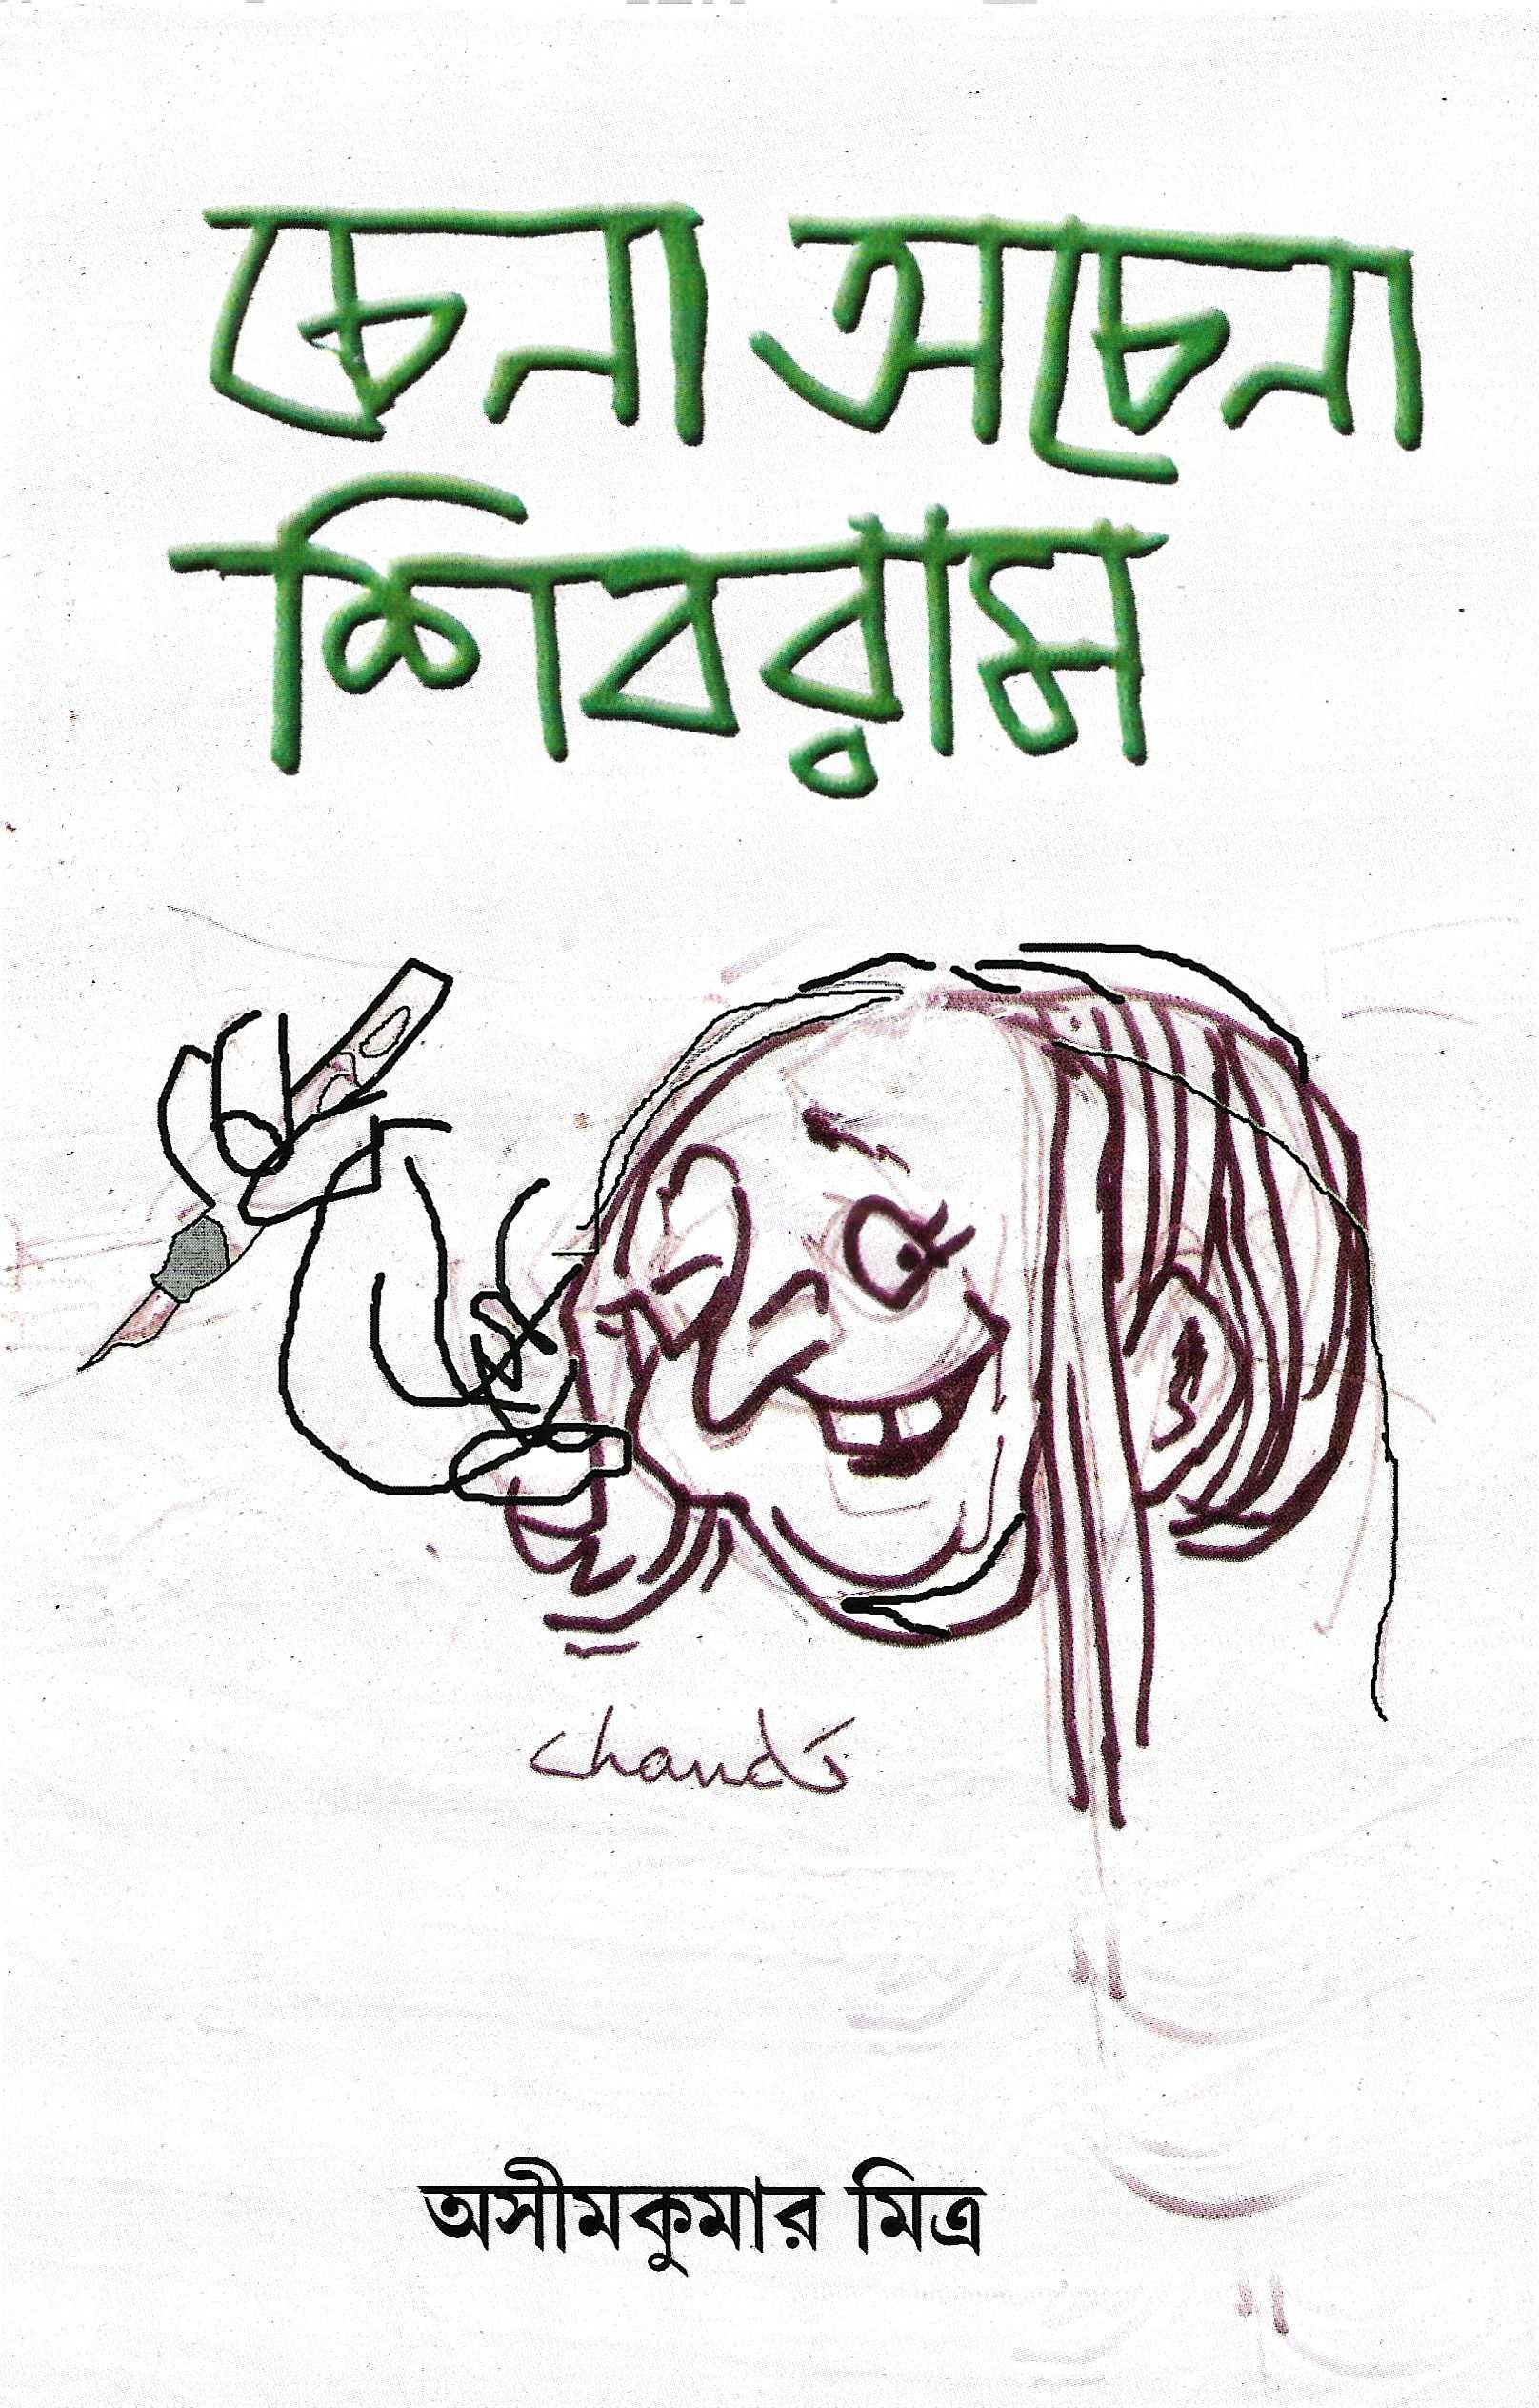 চেনা অচেনা
শিবরাম
Chandi
অসীমকুমার মিত্র